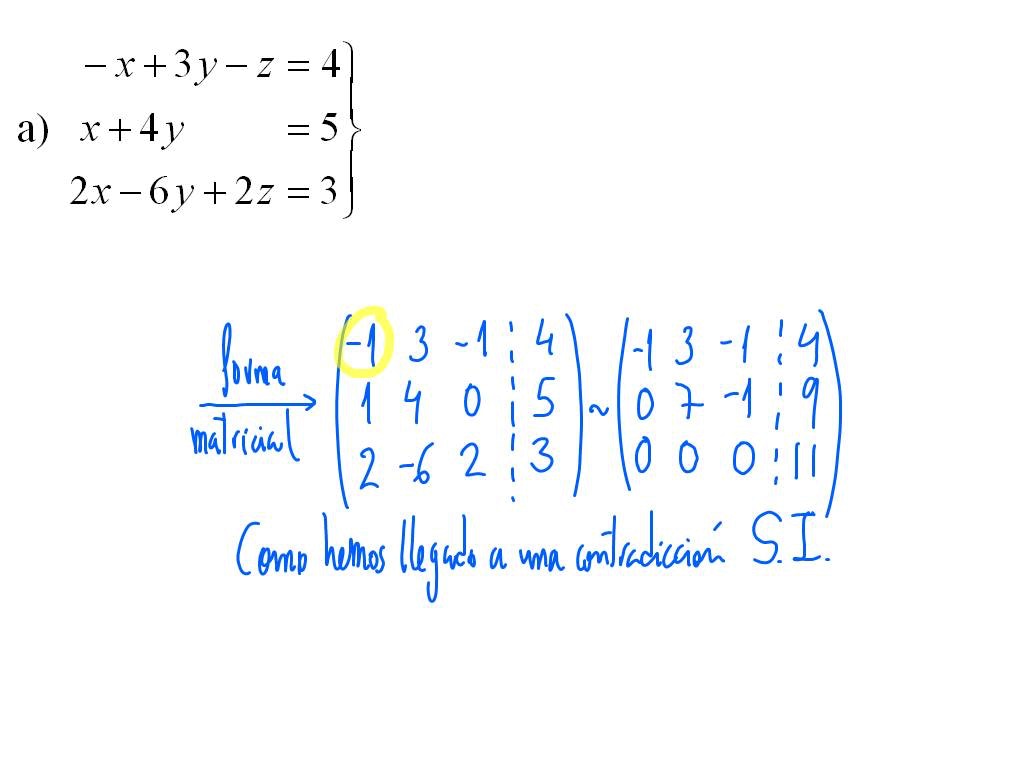 − x + 3y − z = 4
a) x + 4y = 5
2x − 6y + 2z = 3
forma
matricial
-1 3 -1 4 -1 3 -1 4
1 4 0 5 ~ 0 7 -1 9
2 -6 2 3 0 0 0 11
Como hemos llegado a una contradicción S.I.